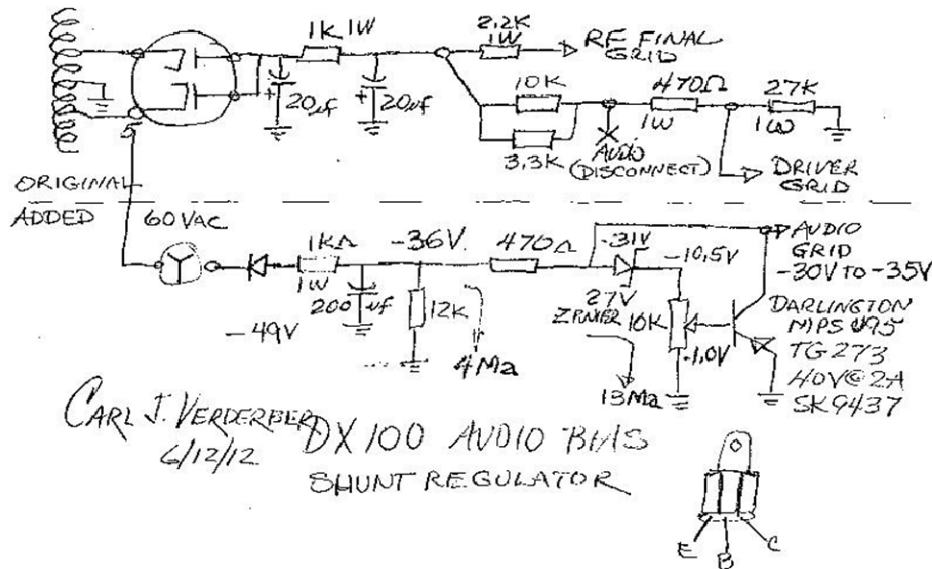 1K 1W
2.2K
1W
RF FINAL
GRID
20µf
20µf
10K
3.3K
470Ω
1W
27K
1W
AUDIO
(DISCONNECT)
DRIVER
GRID
5
ORIGINAL
ADDED
60 VAC
1KΩ
1W
-36V.
470Ω
-31V
-10,5V
AUDIO
GRID
-30V TO -35V
200 µf
12K
27V
ZENER
10K
-1.0V
DARLINGTON
TG 273
40V@2A
SK9437
-49V
4Ma
13Ma
CARL J. VERDERBER
6/12/12
DX100 AUDIO BIAS
SHUNT REGULATOR
E
B
C